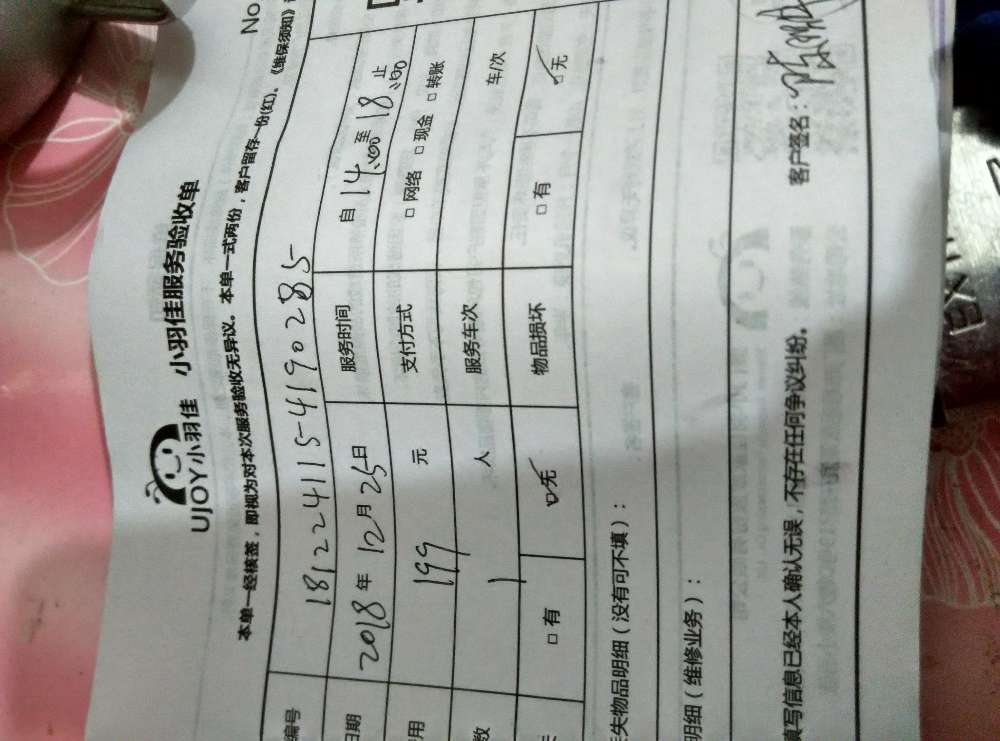 No
UJOY小羽佳 小羽佳服务验收单
本单一经核签，即视为对本次服务验收无异议。本单一式两份，客户留存一份(红)。《维保须知》
编号 181224115-4190285
日期 2018年12月25日 服务时间 自14:00至18:00止
用 199 元 支付方式 □网络 □现金 □转账
数 1 人 服务车次 车/次
□有 ☑无 物品损坏 □有 ☑无
失物品明细（没有可不填）：
明细（维修业务）：
填写信息已经本人确认无误，不存在任何争议纠纷。 客户签名：